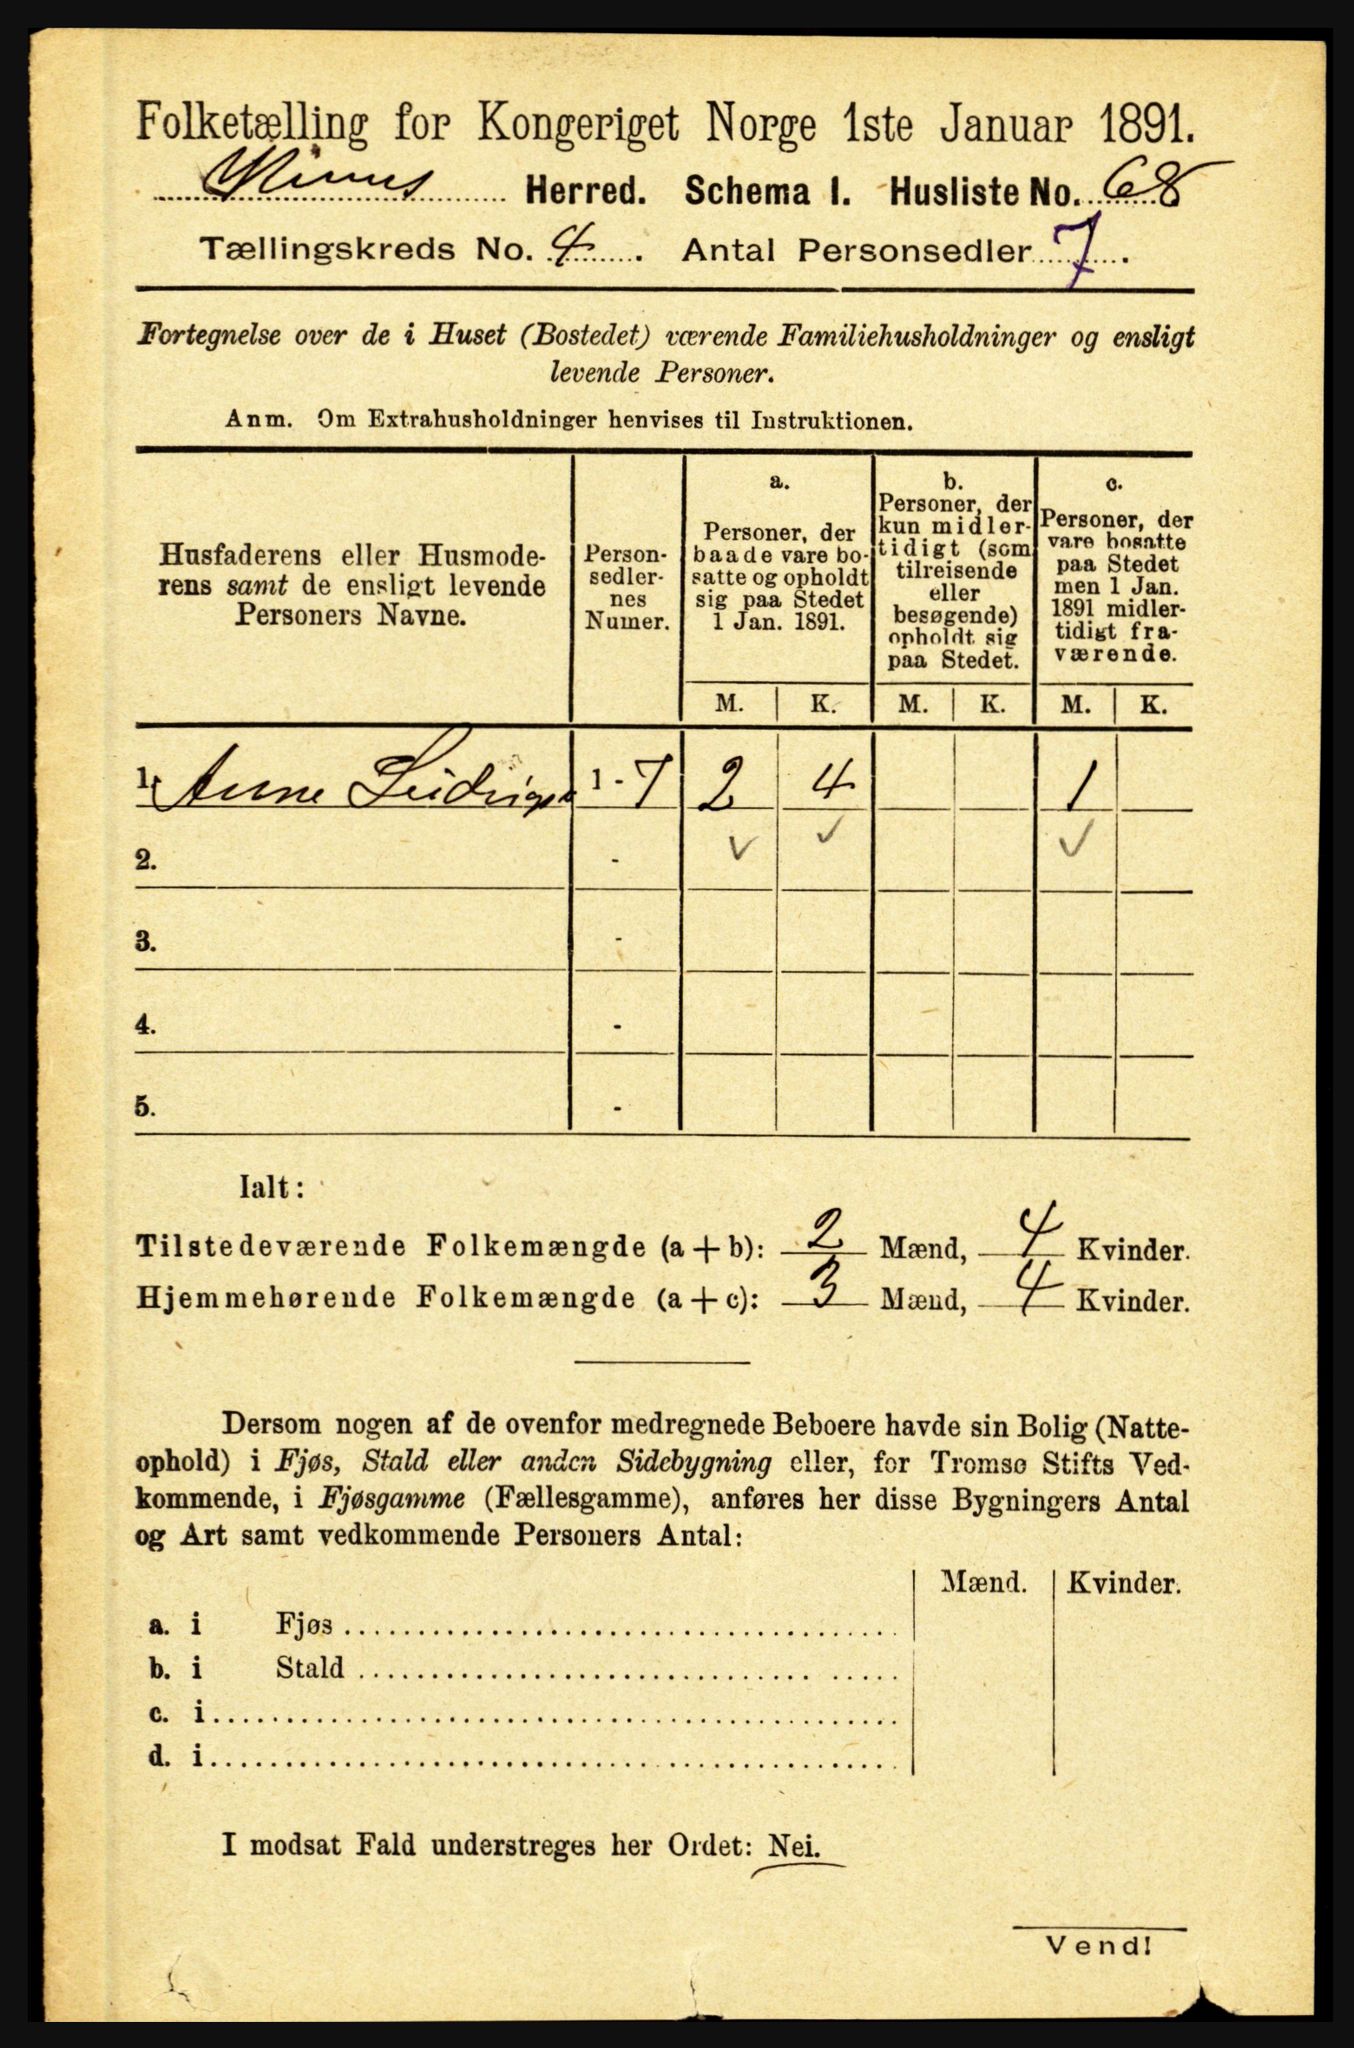 Folketælling for Kongeriget Norge 1ste Januar 1891.
Kinns Herred. Schema 1. Husliste No. 68
Tællingskreds No. 4. Antal Personsedler 7.
Fortegnelse over de i Huset (Bostedet) værende Familiehusholdninger og ensligt
levende Personer.
Anm. Om Extrahusholdninger henvises til Instruktionen.
Husfaderens eller Husmode-
rens samt de ensligt levende
Personers Navne.
Person-
sedler-
nes
Numer.
a.
Personer, der
baade vare bo-
satte og opholdt
sig paa Stedet
1 Jan. 1891.
b.
Personer, der
kun midler-
tidigt (som
tilreisende
eller
besøgende)
opholdt sig
paa Stedet.
c.
Personer, der
vare bosatte
paa Stedet
men 1 Jan.
1891 midler-
tidigt fra-
værende.
M. K. M. K. M. K.
1. Anne 1-7 2 4 1
2. -
3. -
4. -
5. -
Ialt:
Tilstedeværende Folkemængde (a + b): 2 Mænd, 4 Kvinder.
Hjemmehørende Folkemængde (a + c): 3 Mænd, 4 Kvinder.
Dersom nogen af de ovenfor medregnede Beboere havde sin Bolig (Natte-
ophold) i Fjøs, Stald eller anden Sidebygning eller, for Tromsø Stifts Ved-
kommende, i Fjøsgamme (Fællesgamme), anføres her disse Bygningers Antal
og Art samt vedkommende Personers Antal:
Mænd. Kvinder.
a. i Fjøs
b. i Stald
c. i
d. i
I modsat Fald understreges her Ordet: Nei.
Vend!